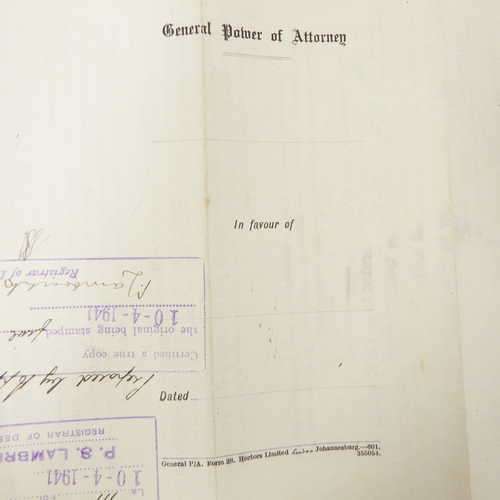 General Power of Attorney
In favour of
Dated
General P/A. Form 28. Hortors Limited Johannesburg.—601.
355054.
Certified a true copy
the original being stamped
10-4-1941
Registrar of
P. S. LAMBRE
REGISTRAR OF DEE
10-4-1941